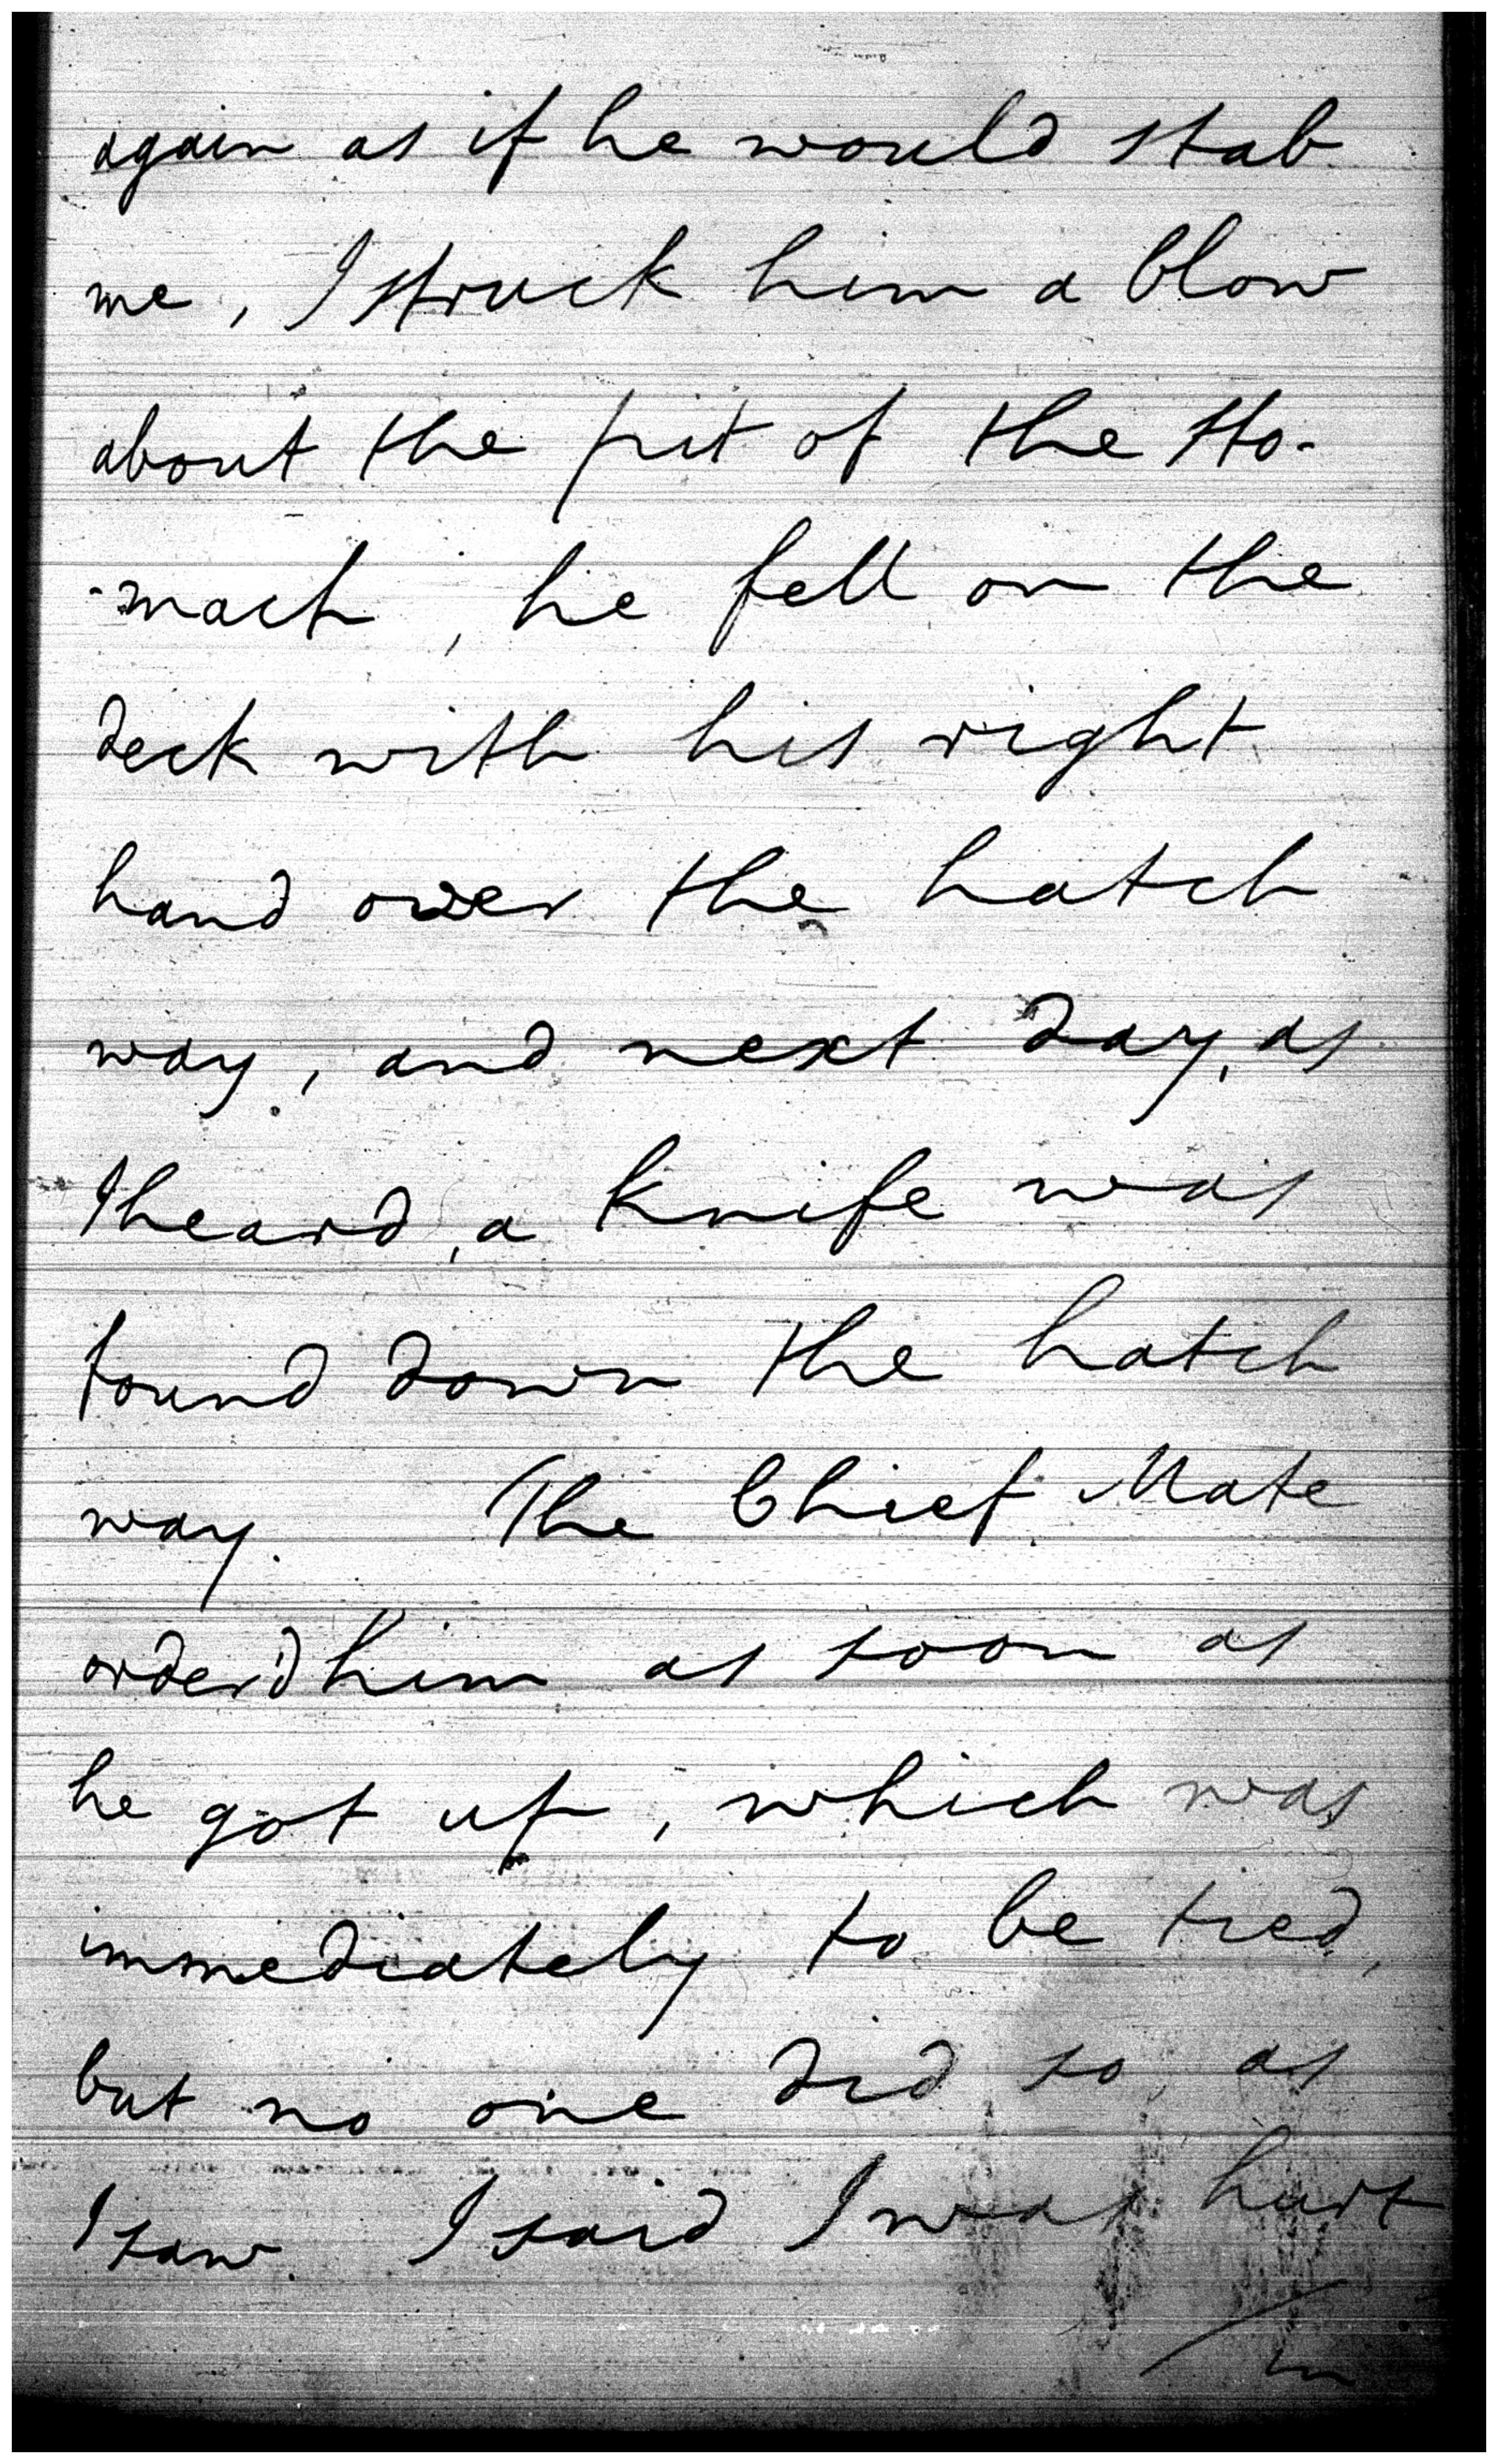 again as if he would stab
me, I struck him a blow
about the pit of the sto-
-mach, he fell on the
deck with his right
hand over the hatch
way, and next day, as
I heard, a knife was
found down the hatch
way. The Chief Mate
order'd him as soon as
he got up, which was
immediately to be tied,
but no one did so, as
I saw. I said I was hurt
/in